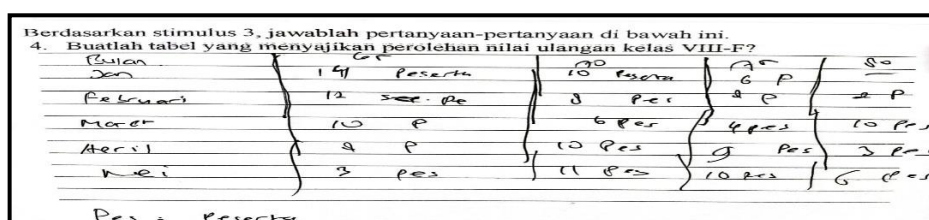 Berdasarkan stimulus 3, jawablah pertanyaan-pertanyaan di bawah ini.
4. Buatlah tabel yang menyajikan perolehan nilai ulangan kelas VIII-F?
Bulan 65 70 75 80
Jan 14 Peserta 10 Peserta 6 P
Februari 12 Pe 8 Pes 8 P 2 P
Maret 10 P 6 Pes 4 pes 10 Pes
Aeril P 10 Pes 9 Pes 3 Pes
Mei 3 Pes 11 Pes 10 Pes 6 Pes
Pes = Peserta